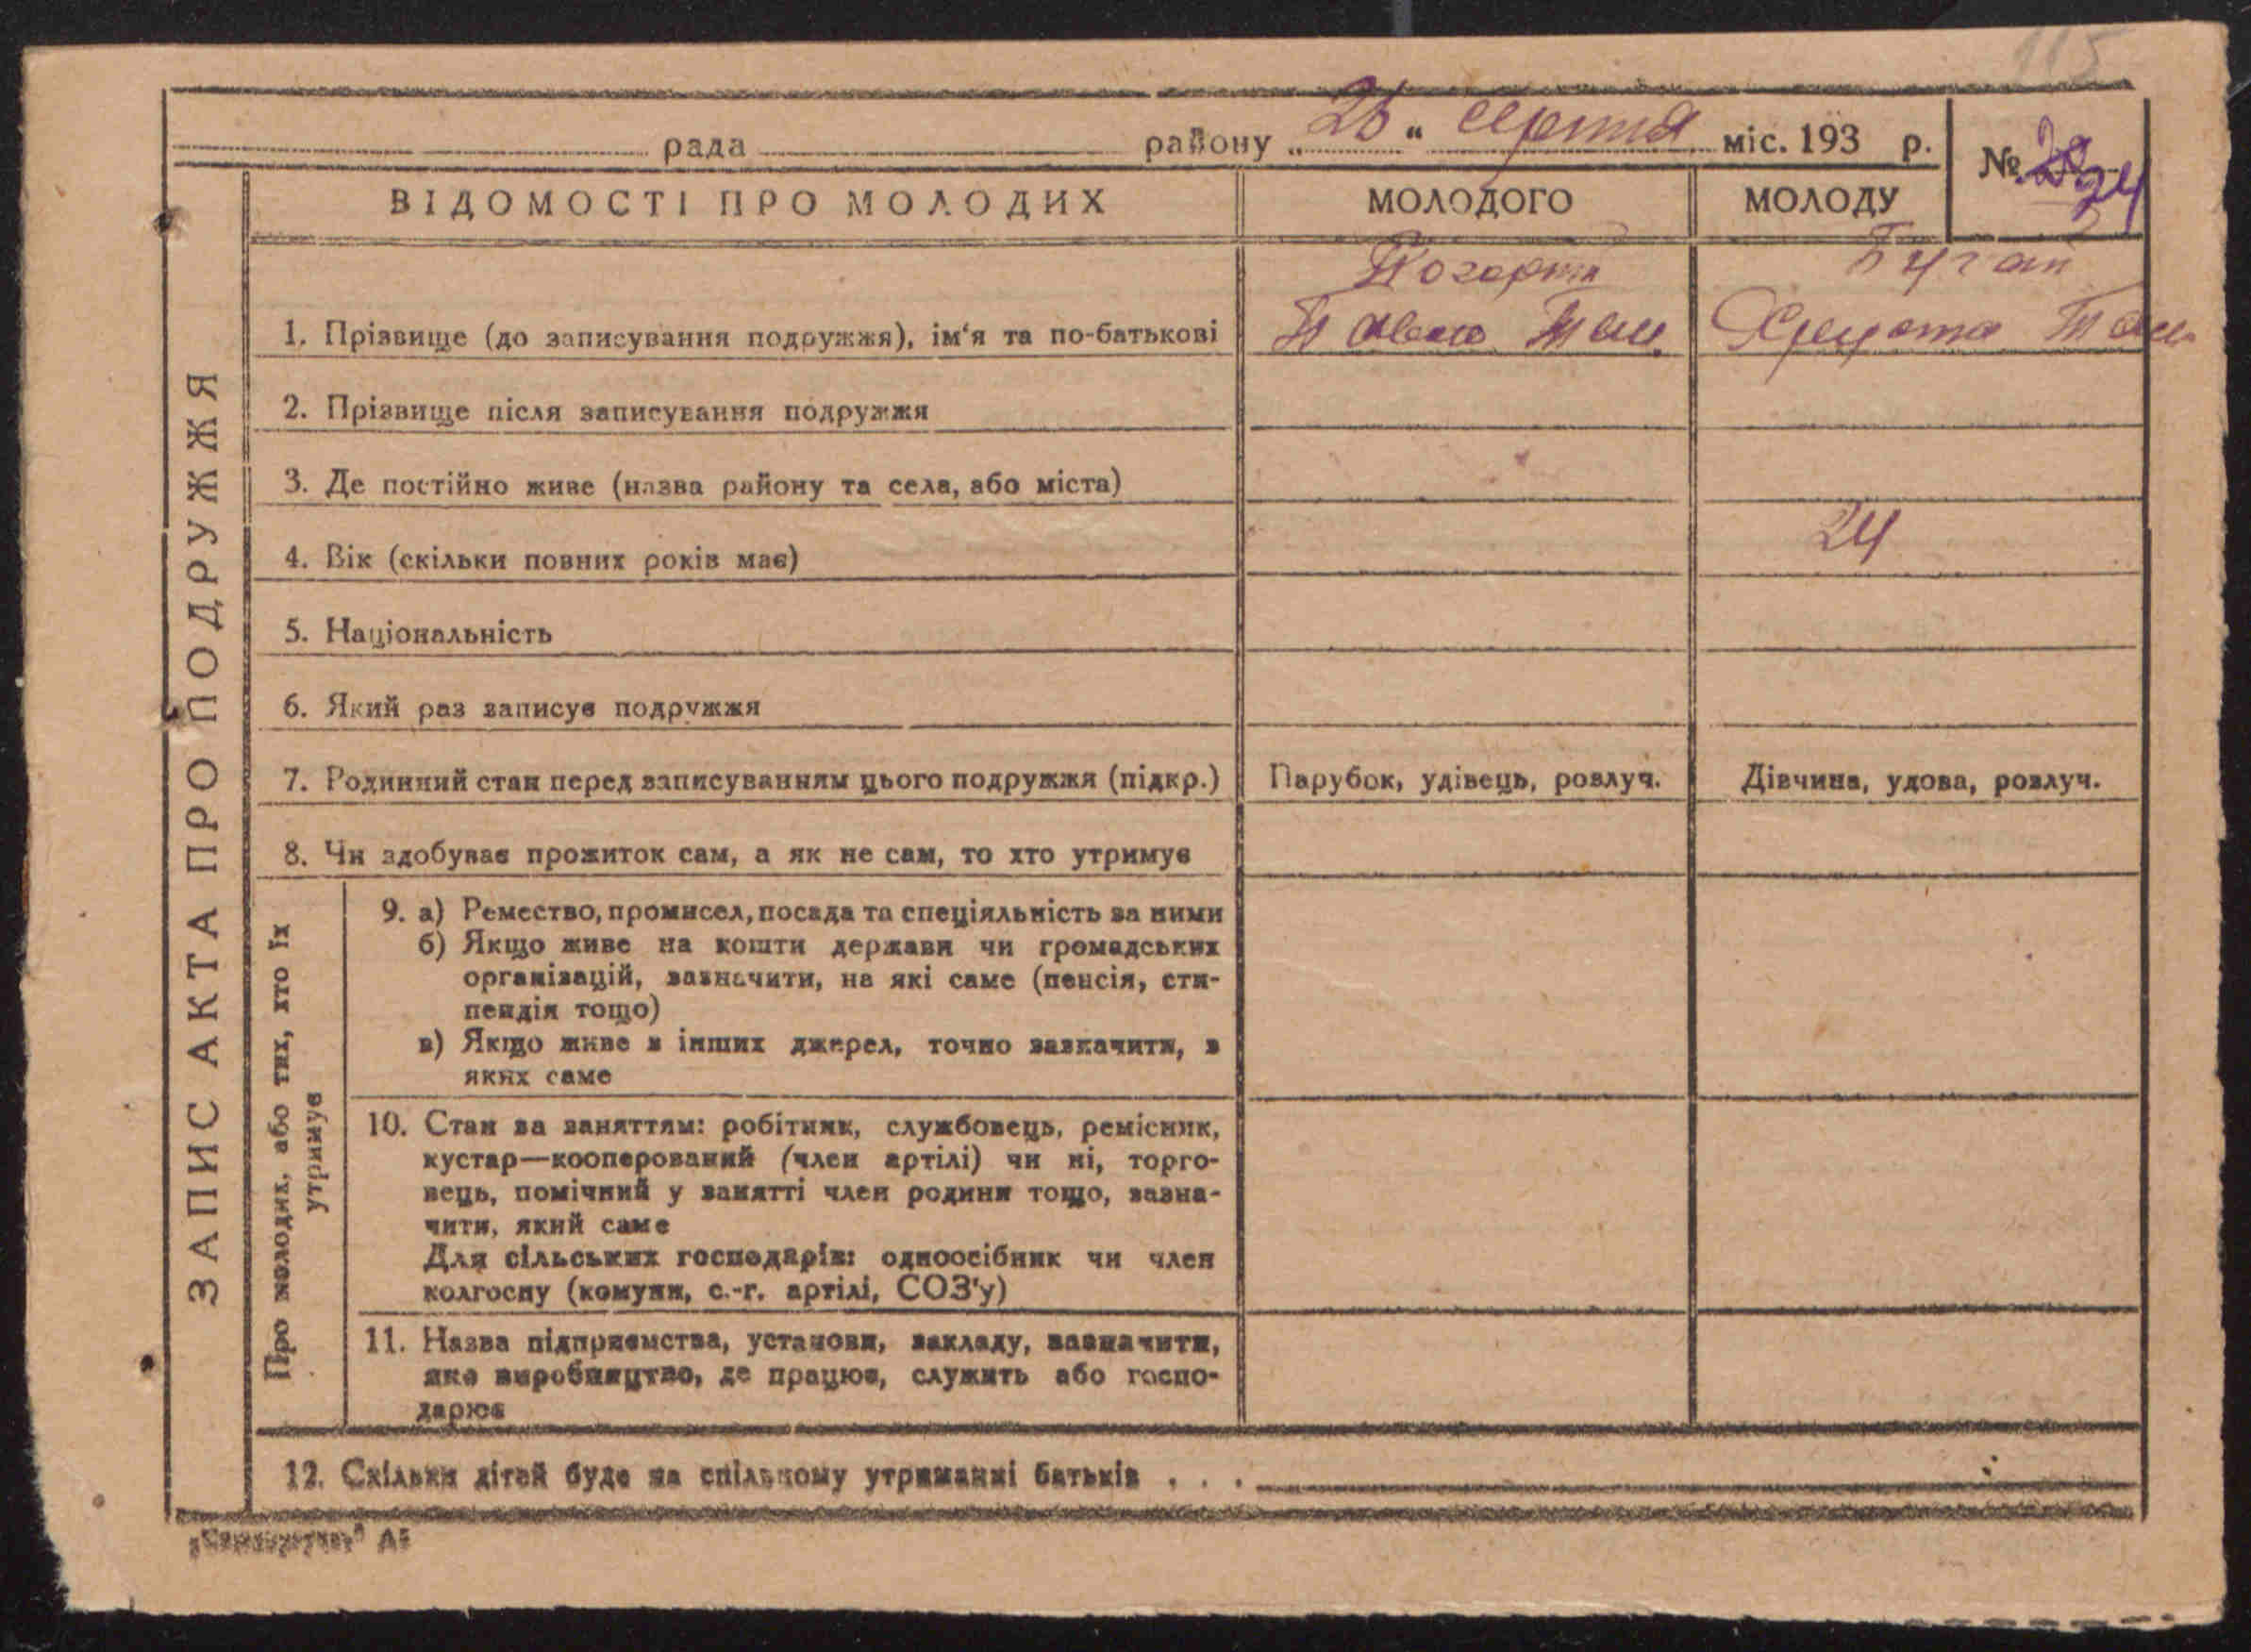 115
рада району „26“ серпня міс. 193 р.
№ 24
ВІДОМОСТІ ПРО МОЛОДИХ МОЛОДОГО МОЛОДУ
ЗАПИС АКТА ПРО ПОДРУЖЖЯ
Бугай
1. Прізвище (до записування подружжя), ім‘я та по-батькові Павло
2. Прізвище після записування подружжя
3. Де постійно живе (назва району та села, або міста)
4. Вік (скільки повних років має) 24
5. Національність
6. Який раз записує подружжя
7. Родинний стан перед записуванням цього подружжя (підкр.) Парубок, удівець, розлуч. Дівчина, удова, розлуч.
8. Чи здобуває прожиток сам, а як не сам, то хто утримує
Про молодих, або тих, хто їх
утримує
9. а) Ремество, промисел, посада та спеціяльність за ними
б) Якщо живе на кошти держави чи громадських
організацій, зазначити, на які саме (пенсія, сти-
пендія тощо)
в) Якщо живе з інших джерел, точно зазначити, з
яких саме
10. Стан за заняттям: робітник, службовець, ремісник,
кустар—кооперований (член артілі) чи ні, торго-
вець, помічний у занятті член родини тощо, зазна-
чити, який саме
Для сільських господарів: одноосібник чи член
колгоспу (комуни, с.-г. артілі, СОЗ'у)
11. Назва підприємства, установи, закладу, зазначити,
яке виробництво, де працює, служить або госпо-
дарює
12. Скільки дітей буде на спільному утриманні батьків . . .